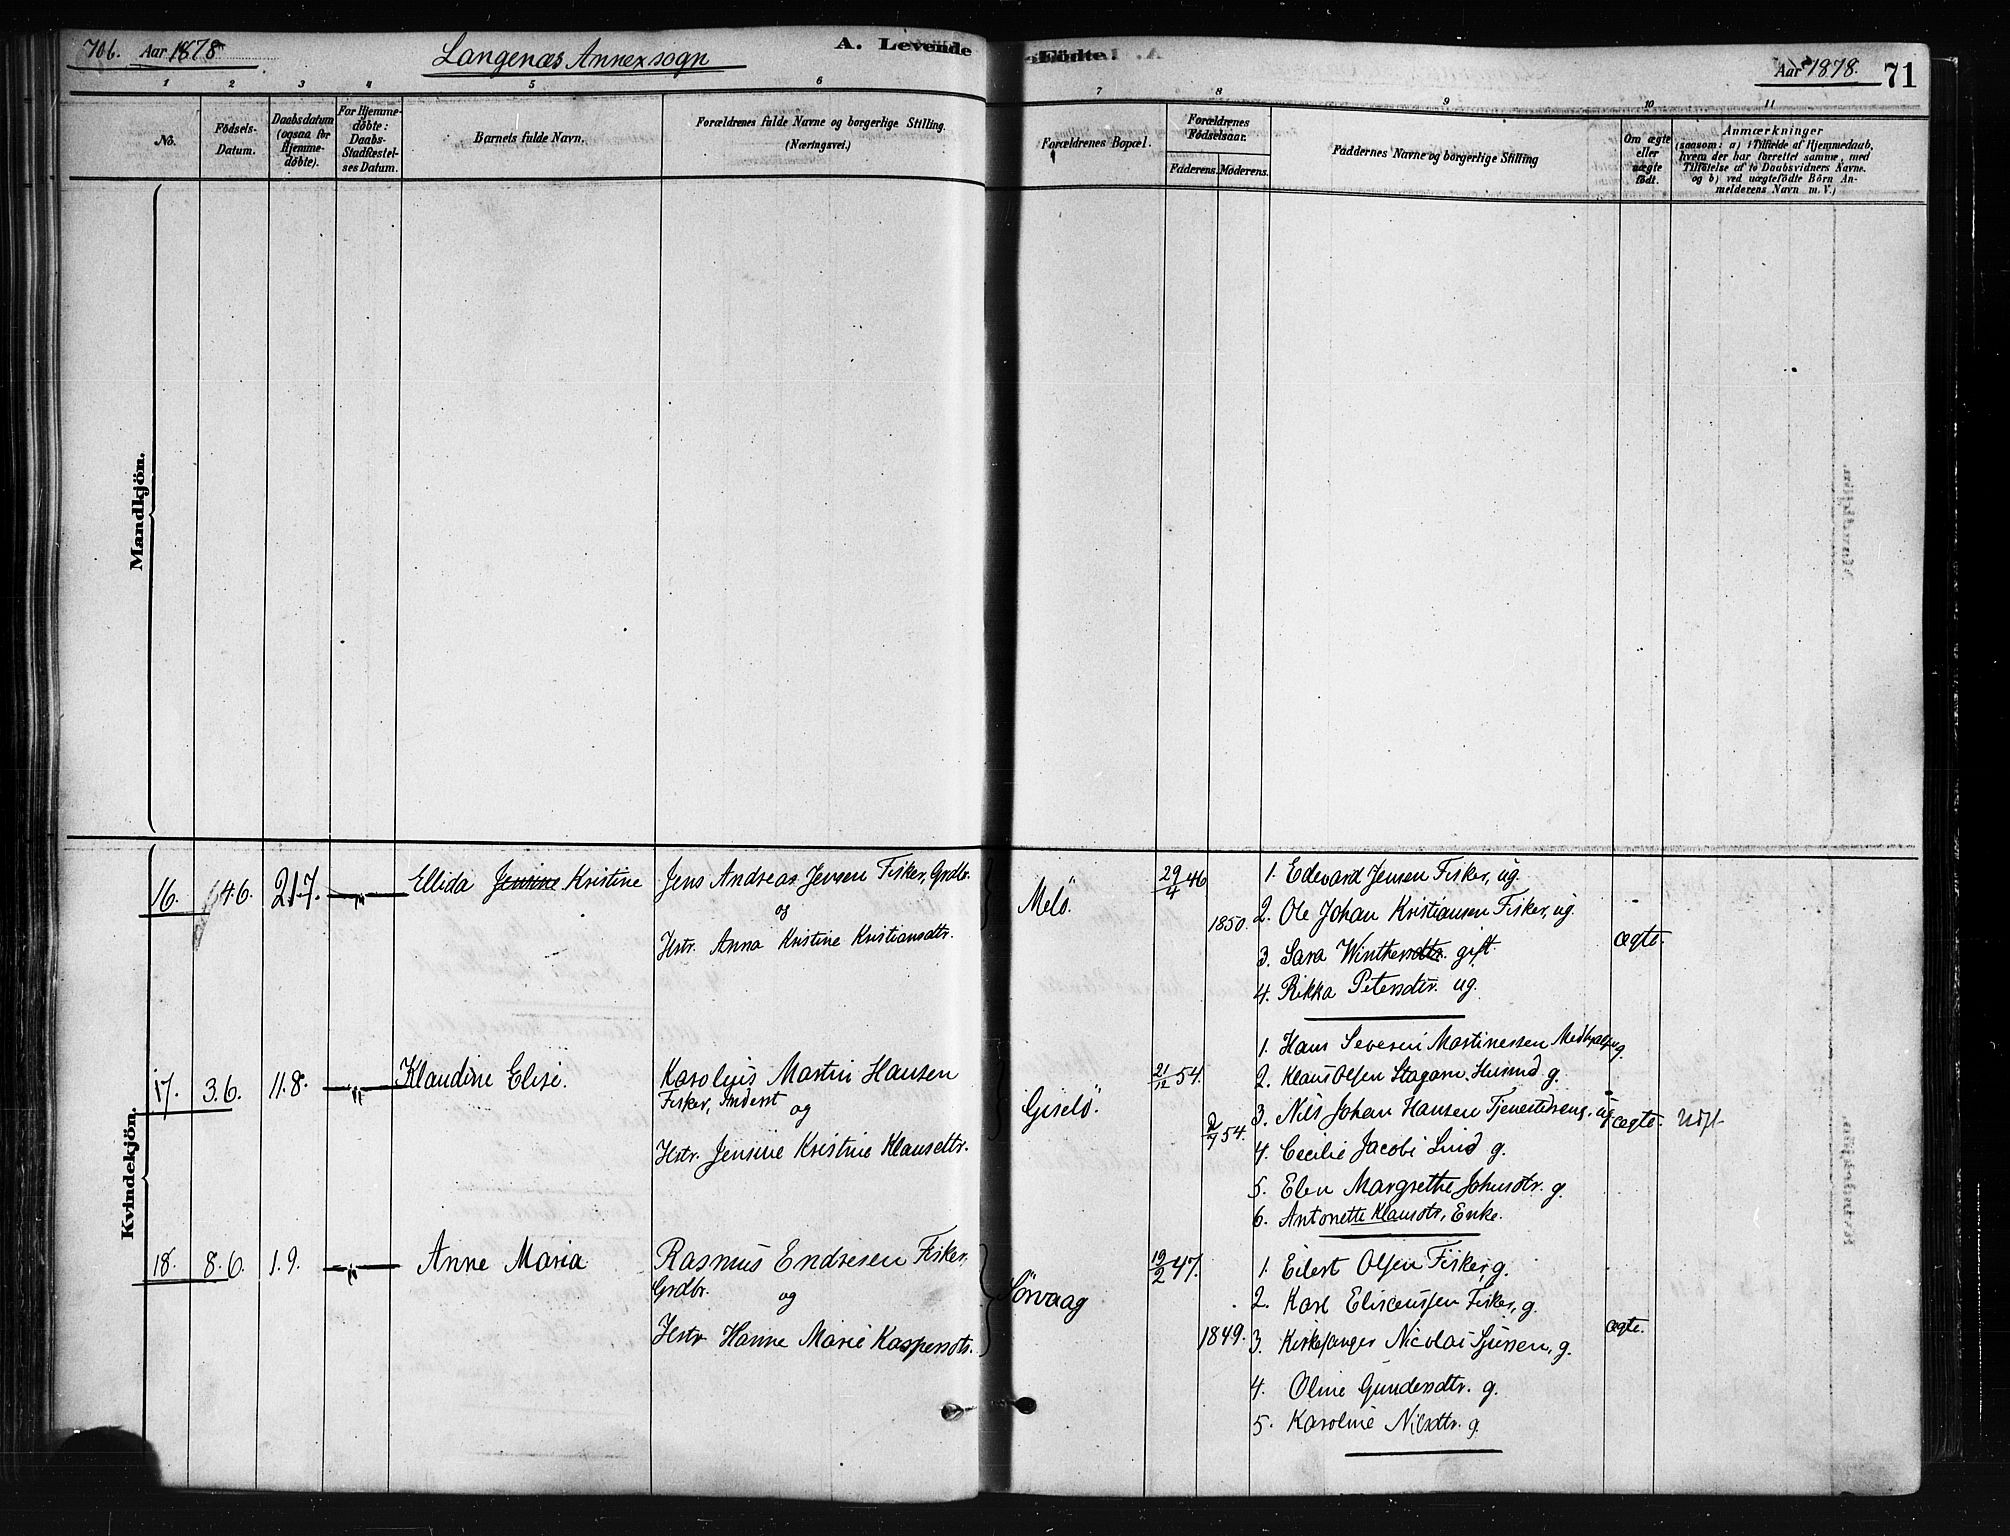 706. Aar 1878
Langenæs Annexsogn
A. Levende
Fødte
Aar 1878. 71
1 2 3 4 5 6 7 8 9 10 11
No.
Födsels-Datum.
Daabsdatum (ogsaa for Hjemme-döbte).
For Hjemme-döbte: Daabs-Stadfæstel-ses Datum.
Barnets fulde Navn.
Forældrenes fulde Navne og borgerlige Stilling. (Næringsvei.)
Forældrenes Bopæl.
Forældrenes Födselsaar.
Faderens. Moderens.
Faddernes Navne og borgerlige Stilling
Om ægte eller uægte födt.
Anmærkninger
(saasom: a) i Tilfælde af Hjemmedaab,
hvem der har forrettet samme, med
Tilföielse af to Daabsvidners Navne.
og b) ved uægtefödte Börn An-
melderens Navn m. V.)
Mandkjön.
Kvindekjön.
16. 46. 21.7. —"— Ellida Jensine Kristine
Jens Andreas Jensen Fisker, Grdbr.
og
Hstr. Anna Kristine Kristiansdtr.
Melö.
29/4 46
1850.
1. Edevard Jensen Fisker, ug.
2. Ole Johan Kristiansen Fisker, ug.
3. Sara Winthersdtr. gift.
4. Rikka Petersdtr. ug.
ægte.
17. 3.6. 11.8. —"— Klaudine Elise.
Karolius Martin Hansen
Fisker, Inderst og
Hstr. Jensine Kristine Klausdtr.
Giselö.
21/12 54.
2/7 54.
1. Hans Severin Martinessen
2. Klaus Olsen Stagarn. Husmd g.
3. Nils Johan Hansen Tjenestedreng, ug
4. Cecilie Jacobi Lind g.
5. Elen Margrethe Johnsdtr. g.
6. Antonette Klausdtr, Enke.
ægte. Udft
18. 8.6. 1.9. —"— Anne Maria
Rasmus Endresen Fisker,
Grdbr. og
Hstr Hanne Marie Kaspersdtr.
Sörvaag
19/2 47.
1849.
1. Eilert Olsen Fisker, g.
2. Karl Eliseussen Fisker, g.
3. Kirkesanger Nicolai Sjursen, g.
4. Oline Gundersdtr. g.
5. Karoline Nilsdtr. g.
ægte.